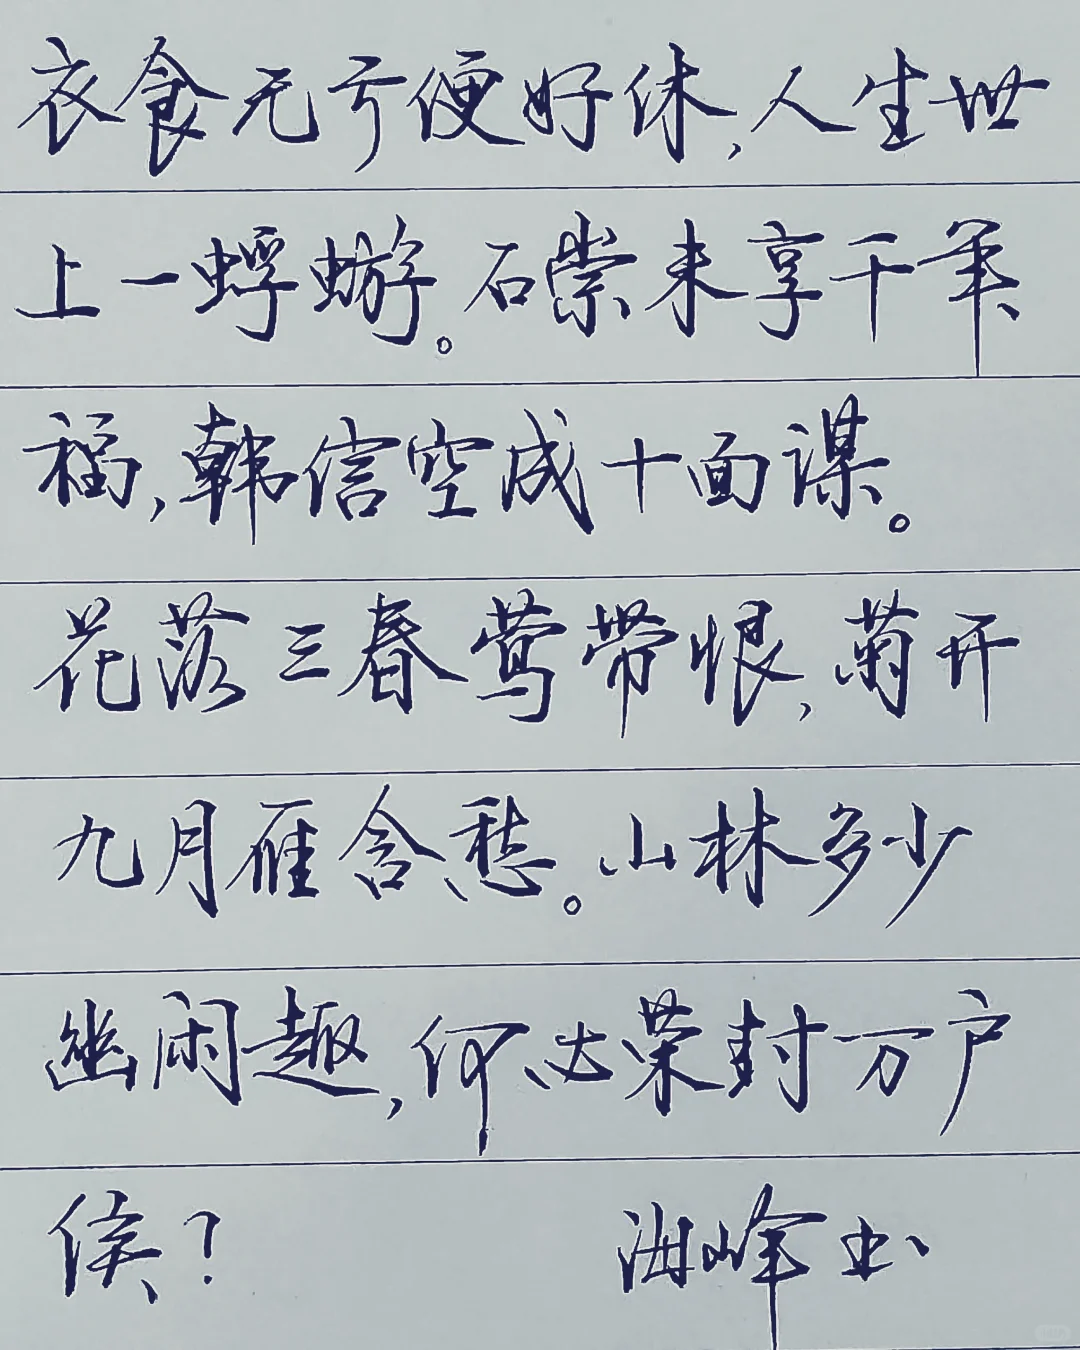 衣食无亏便好休，人生世
上一蜉蝣。石崇未享千年
福，韩信空成十面谋。
花落三春莺带恨，菊开
九月雁含愁。山林多少
幽闲趣，何必荣封万户
侯？ 海峰书